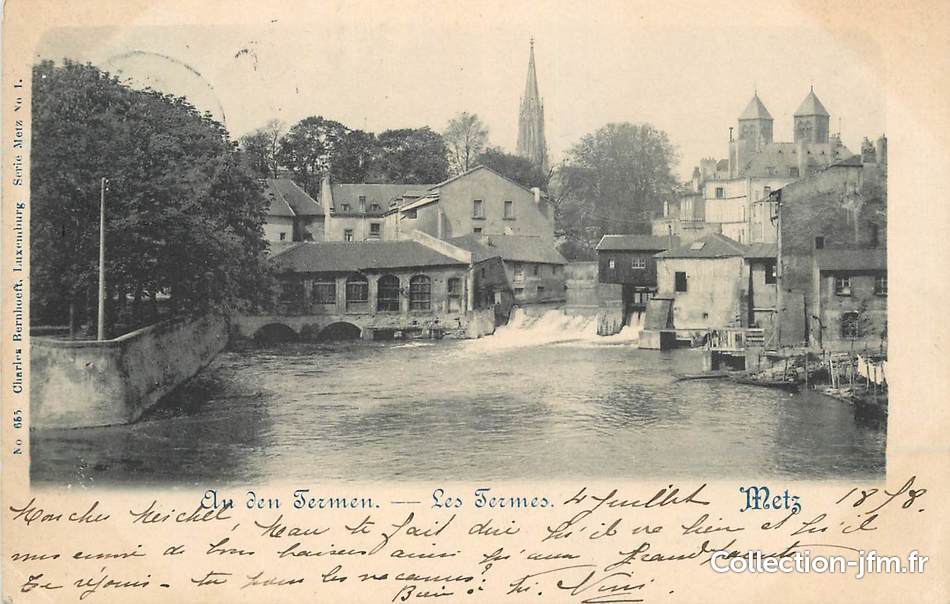 No 653 Charles Bernhoeft, Luxemburg Serie Metz No 1.
An den Termen. — Les Termes. 4 Juillet Metz 1898.
Mon cher Michel, Man te fait dire qu'il va bien et qu'il
envoie de bons baisers ainsi qu'aux
Te réjouis-tu pour les vacances?
Bien à toi,
Collection-jfm.fr